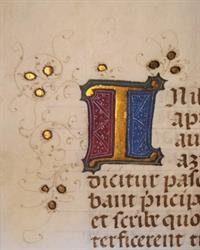 INil
apr
au
az
dicitur pasc
bant principe
et scribe quo
terficerent